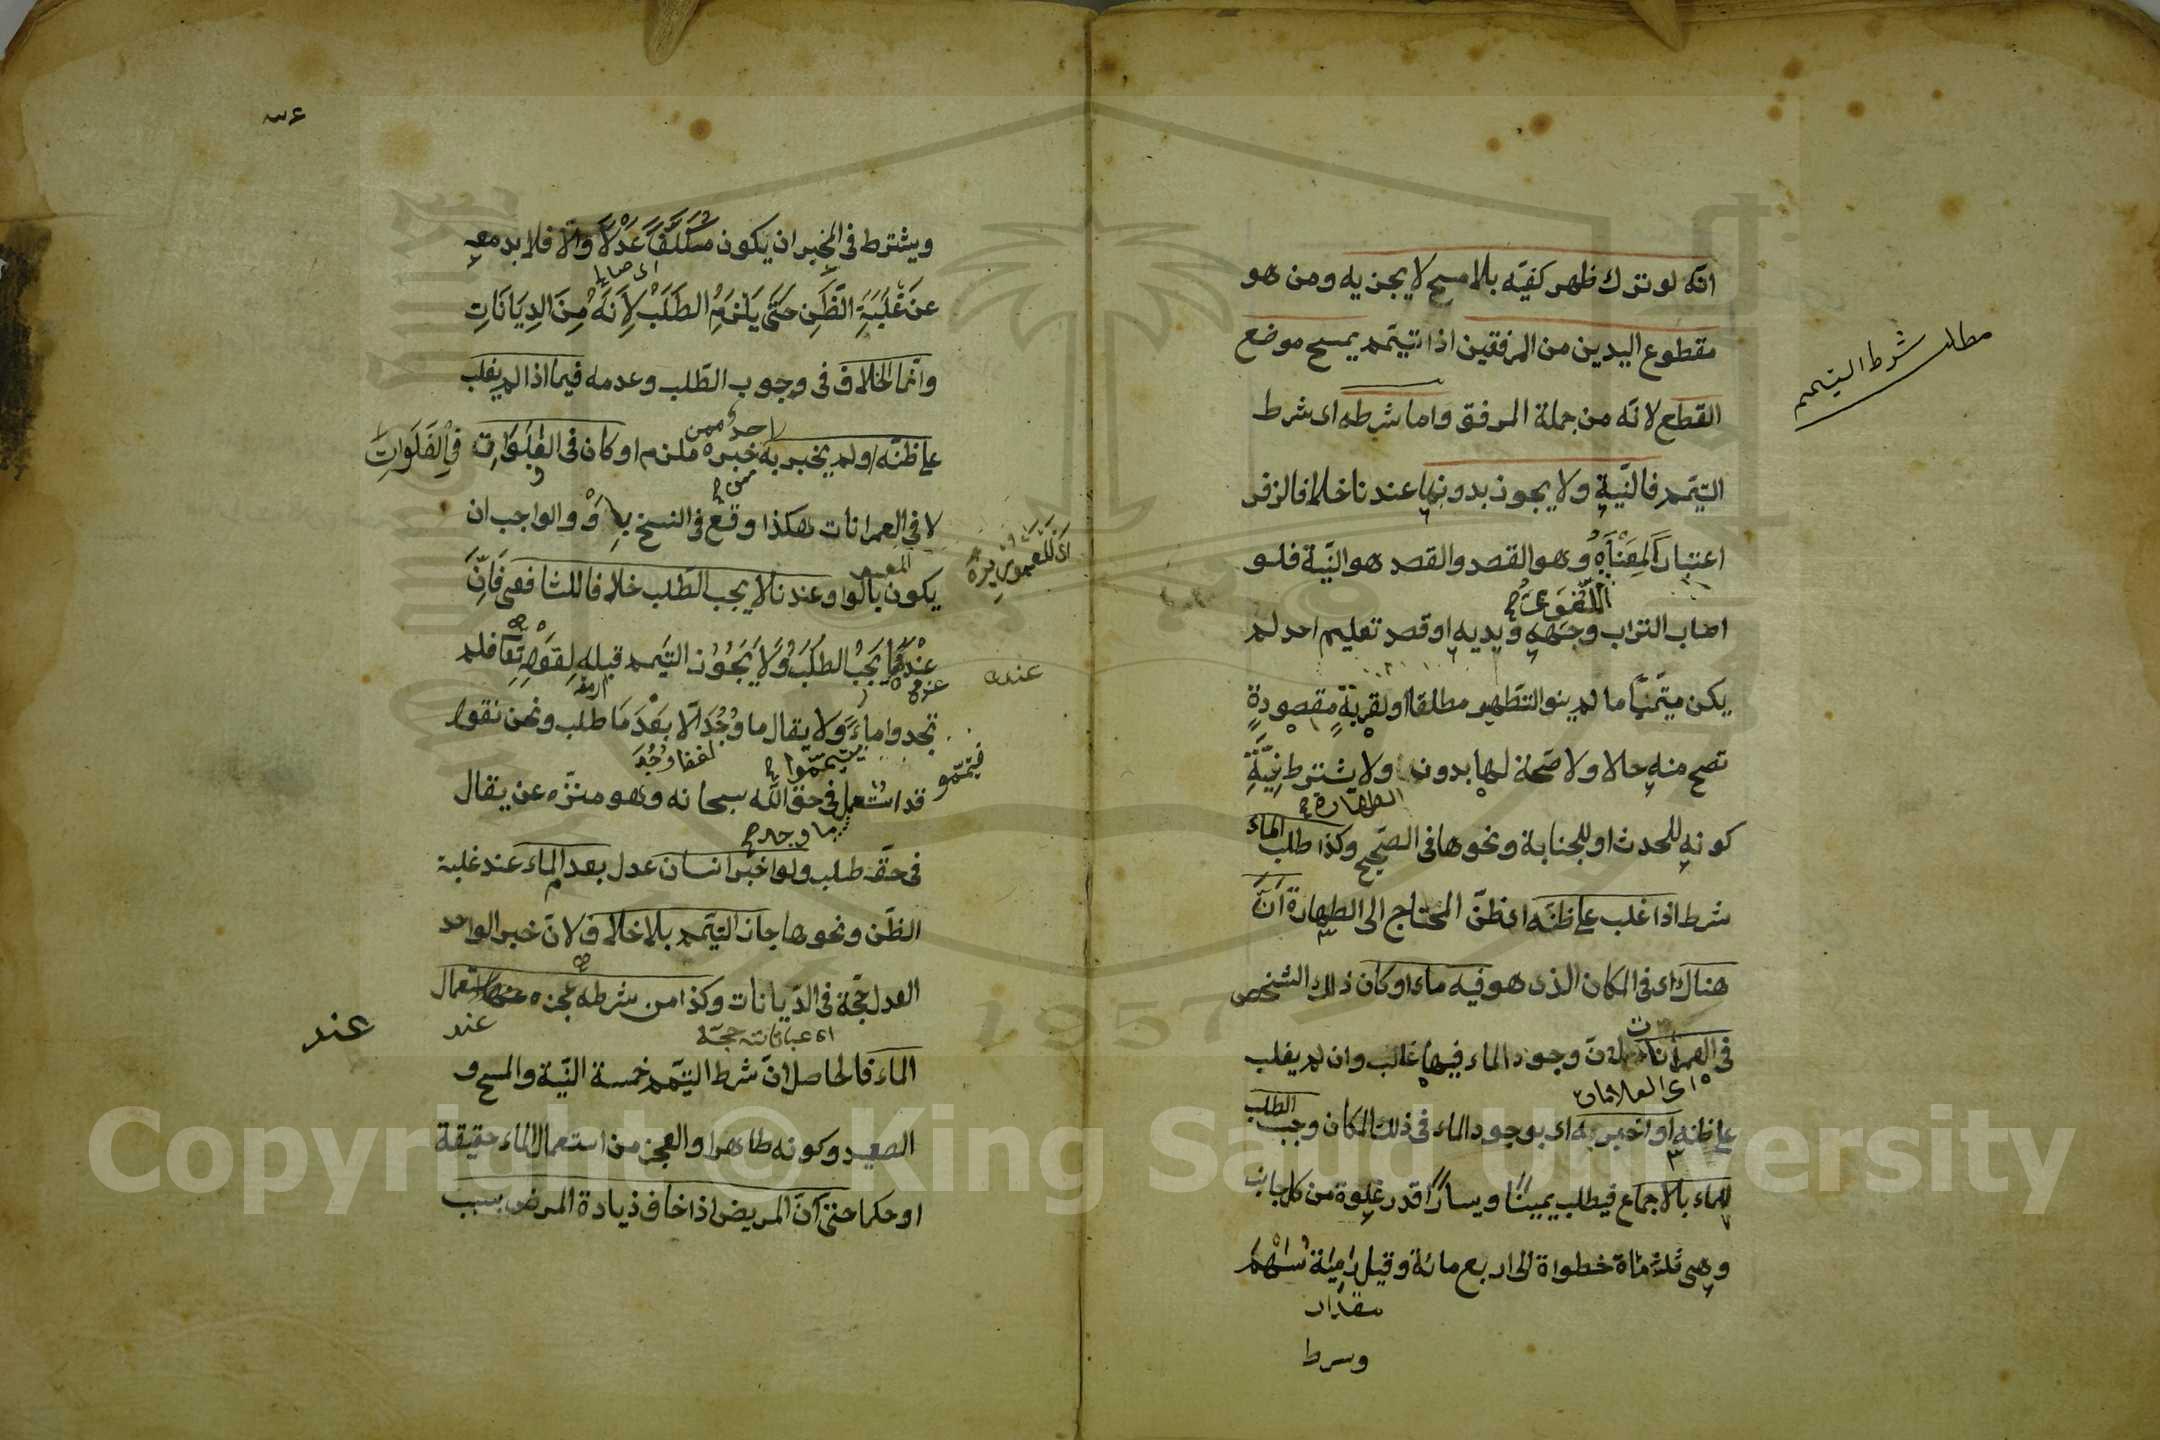 انه لو ترك ظهر كفيه بلا مسح لا يجزيه ومن هو
مقطوع اليدين من المرفقين اذا تيمم يمسح موضع
القطع لانه من جملة المرفق واما شرطه اى شرط
التيمم فالنية ولا يجوز بدونها عندنا خلافا لزفر
اعتبارا لمعناه وهو القصد والقصد هو النية فلو
اللغوى
اصاب التراب وجهه ويديه او قصد تعليم احد لم
يكن متيمما ما لم ينو التطهر مطلقا او لقربة مقصودة
تصح منه حالا ولا صحة لها بدونها ولا يشترط نية
الطهارة
كونه للحدث او للجنابة ونحوها فى الصحيح وكذا طلب الماء
شرط اذا غلب على ظنه اى ظن المحتاج الى الطهارة ان
هناك اى فى المكان الذى هو فيه ماء او كان ذلك الشخص
فى العمرانات لان وجود الماء فيها غالب وان لم يغلب
على ظنه او اخبر به اى بوجود الماء فى ذلك المكان وجب الطلب
للماء بالاجماع فيطلب يمينا ويسارا قدر غلوة من كل جانب
وهى ثلث مائة خطوة الى اربع مائة وقيل رمية سهم
مقدار
ويشرط
مطلب شرط التيمم
ويشترط فى المخبر ان يكون مكلفا عدلا والا فلا بد معه
عن غلبة الظن حتى يلزم الطلب لانه من الديانات
وانما الخلاف فى وجوب الطلب وعدمه فيما اذا لم يغلب
على ظنه ولم يخبر به خبره ملزم او كان فى الفلوات فى الفلوات
لا فى العمرانات هكذا وقع فى النسخ بلا و والواجب ان
يكون بالواو عندنا لا يجب الطلب خلافا للشافعى فان
عنده يجب الطلب ولا يجوز التيمم قبله لقوله تعا فلم
عنده
تجدوا ماء ولا يقال ما وجد الا بعد ما طلب ونحن نقول
فتيمموا
قد استعمل فى حق الله سبحانه وهو منزه عن يقال
ما وجد
فى حقه طلب ولو اخبر انسان عدل بعد الماء عند غلبة
الظن ونحوها جاز التيمم بلا خلاف لان خبر الواحد
العدل حجة فى الديانات وكذا من شرطه عجزه عن استعمال
عند
عند
الماء فالحاصل ان شرط التيمم خمسة النية والمسح و
الصعيد وكونه طاهرا والعجز من استعمال الماء حقيقة
او حكما حتى ان المريض اذا خاف زيادة المرض بسبب
1957
Copyright © King Saud University